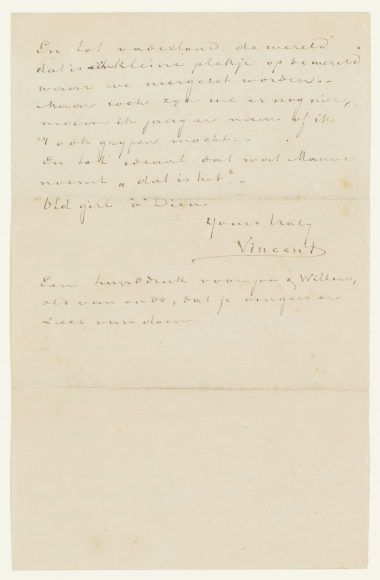 En tot vaderland de wereld
dat is elk kleine plekje op de wereld
waar we neergezet worden.-
Maar toch zijn we er nog niet,
maar ik jaag er naar of ik
't ook grijpen mocht.-
En tot ideaal dat wat Mauve
noemt „dat is het". -
Old girl à Dieu
Yours truly
Vincent
Een handdruk voor jou & Willem,
als van ouds, dat je vingers er
zeer van doen.